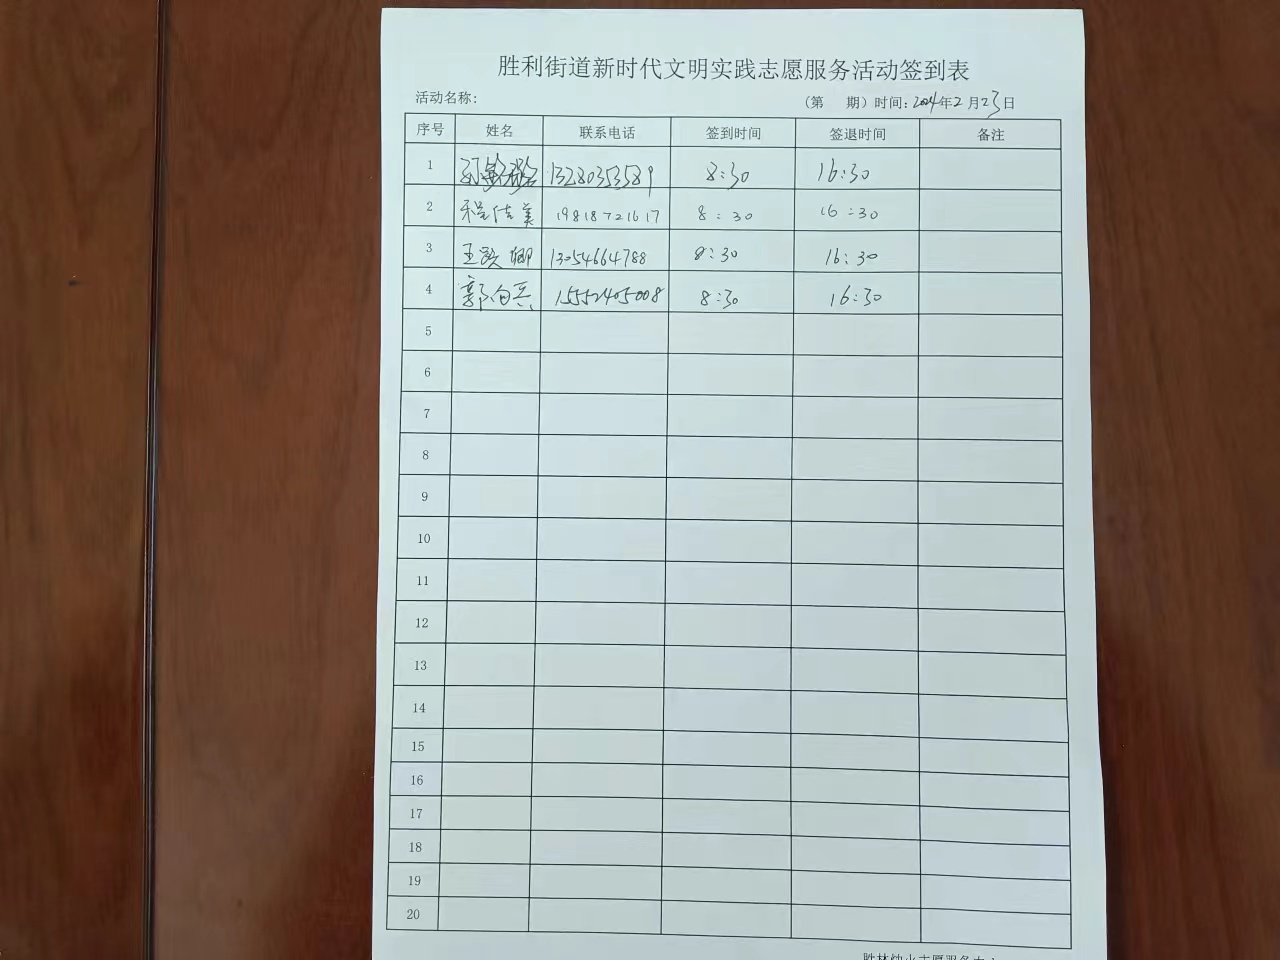 胜利街道新时代文明实践志愿服务活动签到表
活动名称: (第 期)时间:2024年2月23日
序号 姓名 联系电话 签到时间 签退时间 备注
1 13280353589 8:30 16:30
2 程佳美 19818721617 8:30 16:30
3 王 娜 13054664788 8:30 16:30
4 郭向兵 15552405008 8:30 16:30
5
6
7
8
9
10
11
12
13
14
15
16
17
18
19
20